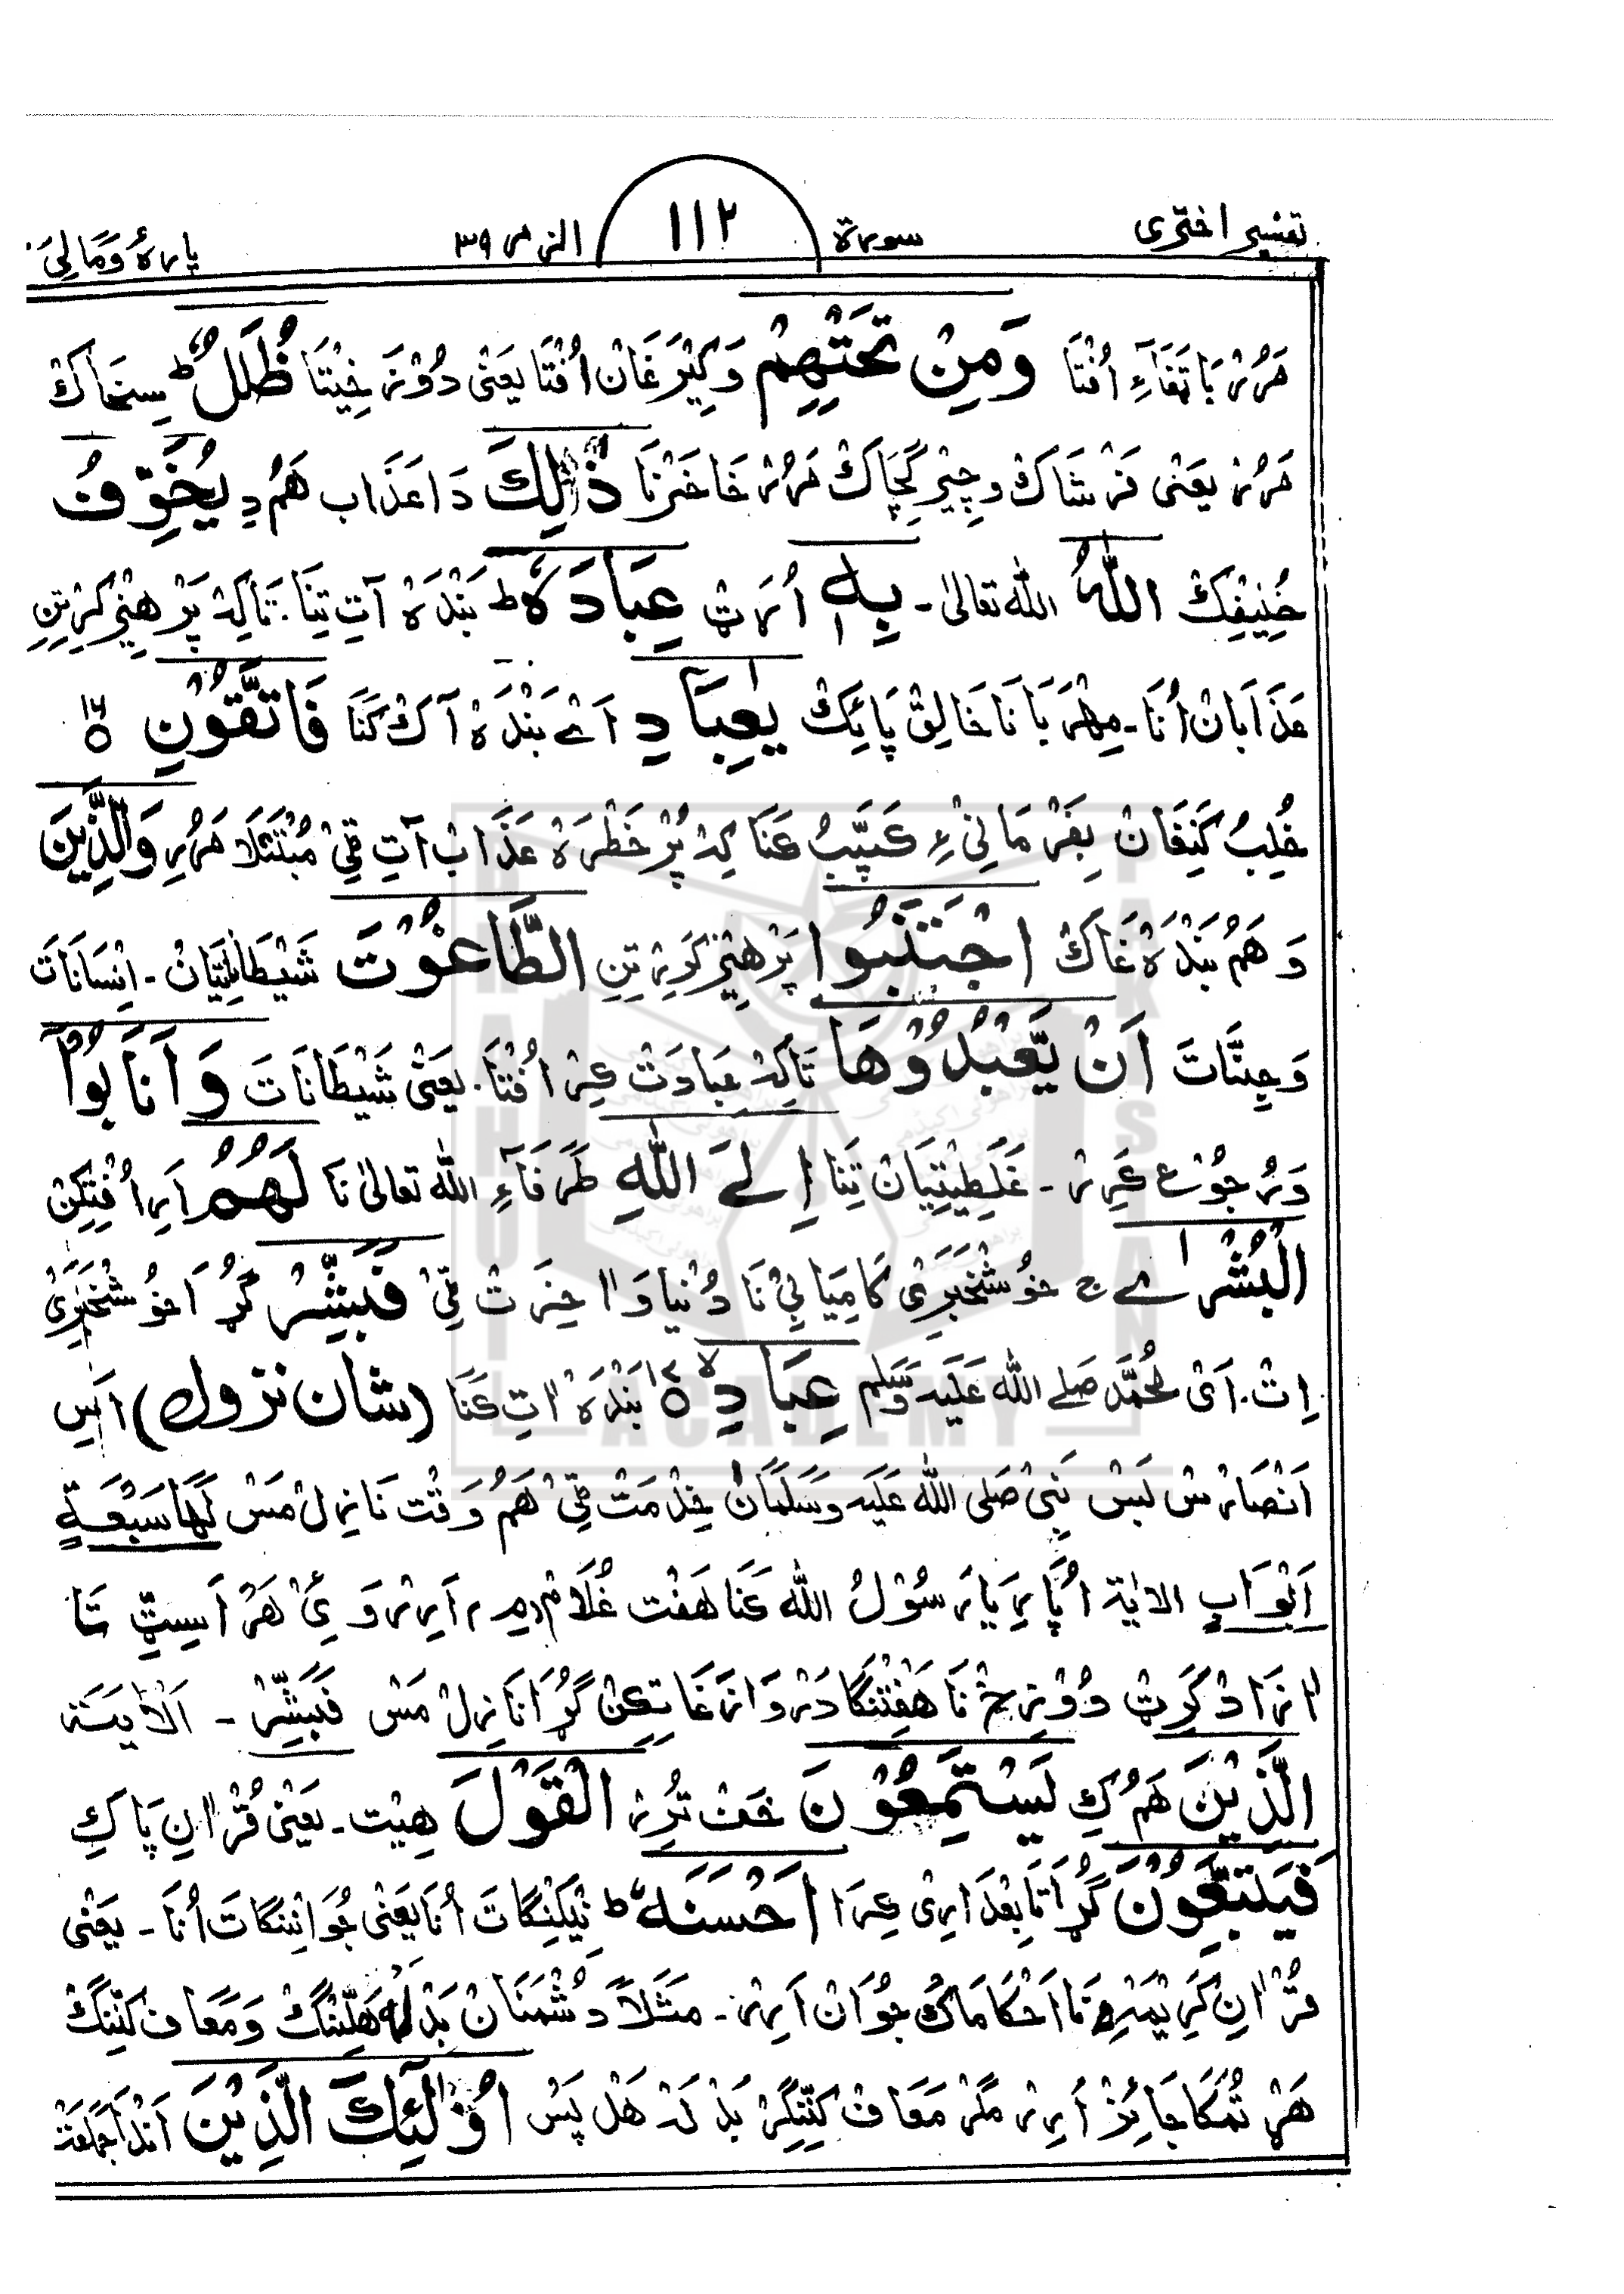 تفسیر اختری
سورة
١١٢
الزمر ٣٩
پارہُ وَمَالِیَ
مَرُرْ بَاتَغَآءِ اُفْتَا وَمِنْ تَحْتِهِمْ وَکِیْرَغَانْ اُفْتَا یَعْنٖی دُوْزَخِیْتَا ظُلَلٌ ؕ سِیخَاکْ
مَرُرْ یَعْنٖی فَرْشَاکْ وچِیْرِگِچَاکْ مَرُرْ خَاخَرْنَا ذٰلِکَ دَا عَذَاب هَمُ دِ یُخَوِّفُ
خُلِیْفِکْ اللّٰهُ اللّٰه تعالیٰ - بِهٖ اُرَتْ عِبَادَهٗ ؕ بَنْدَهْ آتِ تِنَا. تَاکِہْ پَرْهِیْزْ کَرْتِنِ
عَذَابَانْ اُنَا - مِهْرَبَانَا خَالِقْ پَائِکْ یٰعِبَادِ اَےْ بَنْدَهْ آکْ کَنَا فَاتَّقُوْنِ ۝١٦
خُلِبُ کَنِفَانْ بِفَرْمَانِیْ ءِ کَپَّبُ کَنَا کِہْ پُرْ خَطْرَهْ عَذَابْ آتِ ٹِیْ مُبْتَلَا مَرُرِ وَالَّذِیْنَ
وَ هَمُ بَنْدَهْ غَاکْ اجْتَنَبُوا پَرْهِیْزْ کَرِرْ تِنِ الطَّاغُوْتَ شَیْطَانْتِیَانْ - اِنْسَانَاتَ
وَجِنَّاتَ اَنْ یَّعْبُدُوْهَا تَاکِہْ عِبَادَتْ کِرْ اُفْتَا. یَعْنٖی شَیْطَانَاتَ وَاَنَابُوْا
وَرُجُوْع کَرِرْ - غَلَطِیْتِیَانْ تِنَا اِلَے اللّٰهِ طَرَفَآءِ اللّٰه تعالیٰ نَا لَهُمُ اَرِ اُفْتِکِنْ
الْبُشْرٰے ج خُوشْخَبَرِیْ کَامِیَابِیْ نَا دُنْیَا وَاٰخِرَتْ ٹِیْ فَبَشِّرْ گُڑَا خُوشْخَبَرِیْ
اِتْ. اَیْ مُحَمَّد صَلے اللّٰه عَلَیْہ وَسَلَّم عِبَادِ ۝١٧ بَنْدَهْ اٰتِ کَنَا (شان نزول) اَسِ
اَنْصَارْسْ بَسْ نَبِیْ صَلی اللّٰه عَلَیْہ وَسَلَّمَانْ خِدْمَتْ ٹِیْ هَمُ وَقْت نَازِلْ مَسْ لَهَا سَبْعَةُ
اَبْوَابٍ الایٰة اُپَارِ یَا رَسُوْلُ اللّٰه کَنَا هَفْت غُلَامْ اَرِرْ وَ ئِیْ هَرْ اَسِٹِّ تَا
اٰزَادْ کَرِٹْ دُوْزِخْ نَا هَفْتَنْگَا دَرْوَازَغَاتِکِنْ گُڑَا نَازِلْ مَسْ فَبَشِّرْ - اَلْاٰیَـة
الَّذِیْنَ هَمُ کِ یَسْتَمِعُوْنَ خَفْ تُرِرْ الْقَوْلَ هِیْت - یَعْنٖی قُرْاٰنِ پَاکِ
فَیَتَّبِعُوْنَ گُڑَا تَابِعْدَارِیْ کِرَا اَحْسَنَهٗ ؕ نِیْکَنْگَاتَ اُنَا یَعْنٖی جُوَانْنَگَاتَ اُنَا - یَعْنٖی
قُرْاٰنِ کَرِیْمْ نَا اَحْکَامَاکْ جُوَانْ اَرِرْ - مَثَلًا دُشْمَنَانْ بَدْلَہ هَلِّنْگْ وَمَعَاف کَنِّنْگْ
هَرْ تُمَکَا جَائِزْ اَرِرْ مَگَرْ مَعَاف کَنِّنْگِرْ بَدْلَہْ هَلْ پَسْ اُولٰٓئِکَ الَّذِیْنَ اَنْدَا جَمَاعَتْ